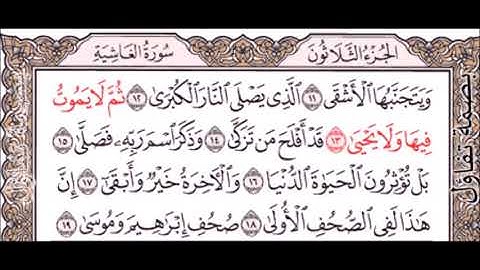 الجزء الثلاثون سورة الغاشية
وَيَتَجَنَّبُهَا ٱلْأَشْقَى ١١ ٱلَّذِى يَصْلَى ٱلنَّارَ ٱلْكُبْرَىٰ ١٢ ثُمَّ لَا يَمُوتُ
فِيهَا وَلَا يَحْيَىٰ ١٣ قَدْ أَفْلَحَ مَن تَزَكَّىٰ ١٤ وَذَكَرَ ٱسْمَ رَبِّهِۦ فَصَلَّىٰ ١٥
بَلْ تُؤْثِرُونَ ٱلْحَيَوٰةَ ٱلدُّنْيَا ١٦ وَٱلْآخِرَةُ خَيْرٌ وَأَبْقَىٰٓ ١٧ إِنَّ
هَٰذَا لَفِى ٱلصُّحُفِ ٱلْأُولَىٰ ١٨ صُحُفِ إِبْرَٰهِيمَ وَمُوسَىٰ ١٩
بصمة تفاؤل